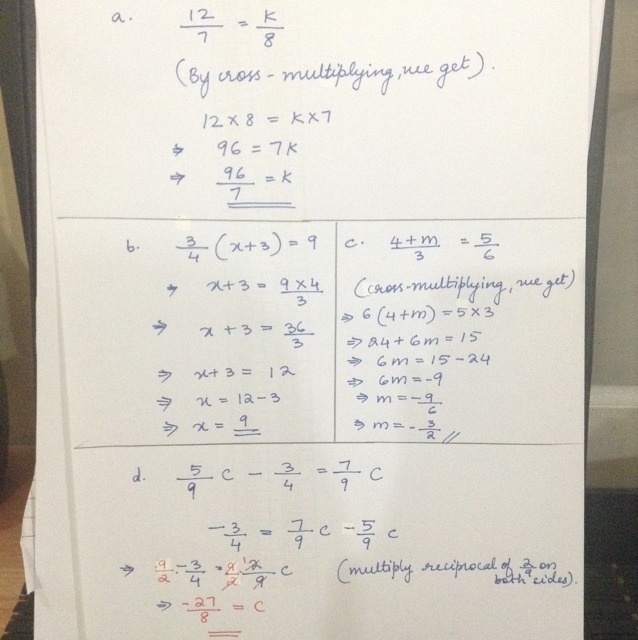 a. 12/7 = K/8
(By cross-multiplying, we get).
12 × 8 = K×7
⇒ 96 = 7K
⇒ 96/7 = K
b. 3/4 (x+3) = 9
⇒ x+3 = 9×4/3
⇒ x+3 = 36/3
⇒ x+3 = 12
⇒ x = 12-3
⇒ x = 9
c. 4+m/3 = 5/6
(cross-multiplying, we get)
⇒ 6(4+m) = 5×3
⇒ 24+6m = 15
⇒ 6m = 15-24
⇒ 6m = -9
⇒ m = -9/6
⇒ m = -3/2 //
d. 5/9 c - 3/4 = 7/9 c
-3/4 = 7/9 c - 5/9 c
⇒ 9/2 · -3/4 = 9/2 · 2/9 c (multiply reciprocal of 2/9 on
both sides).
⇒ -27/8 = c